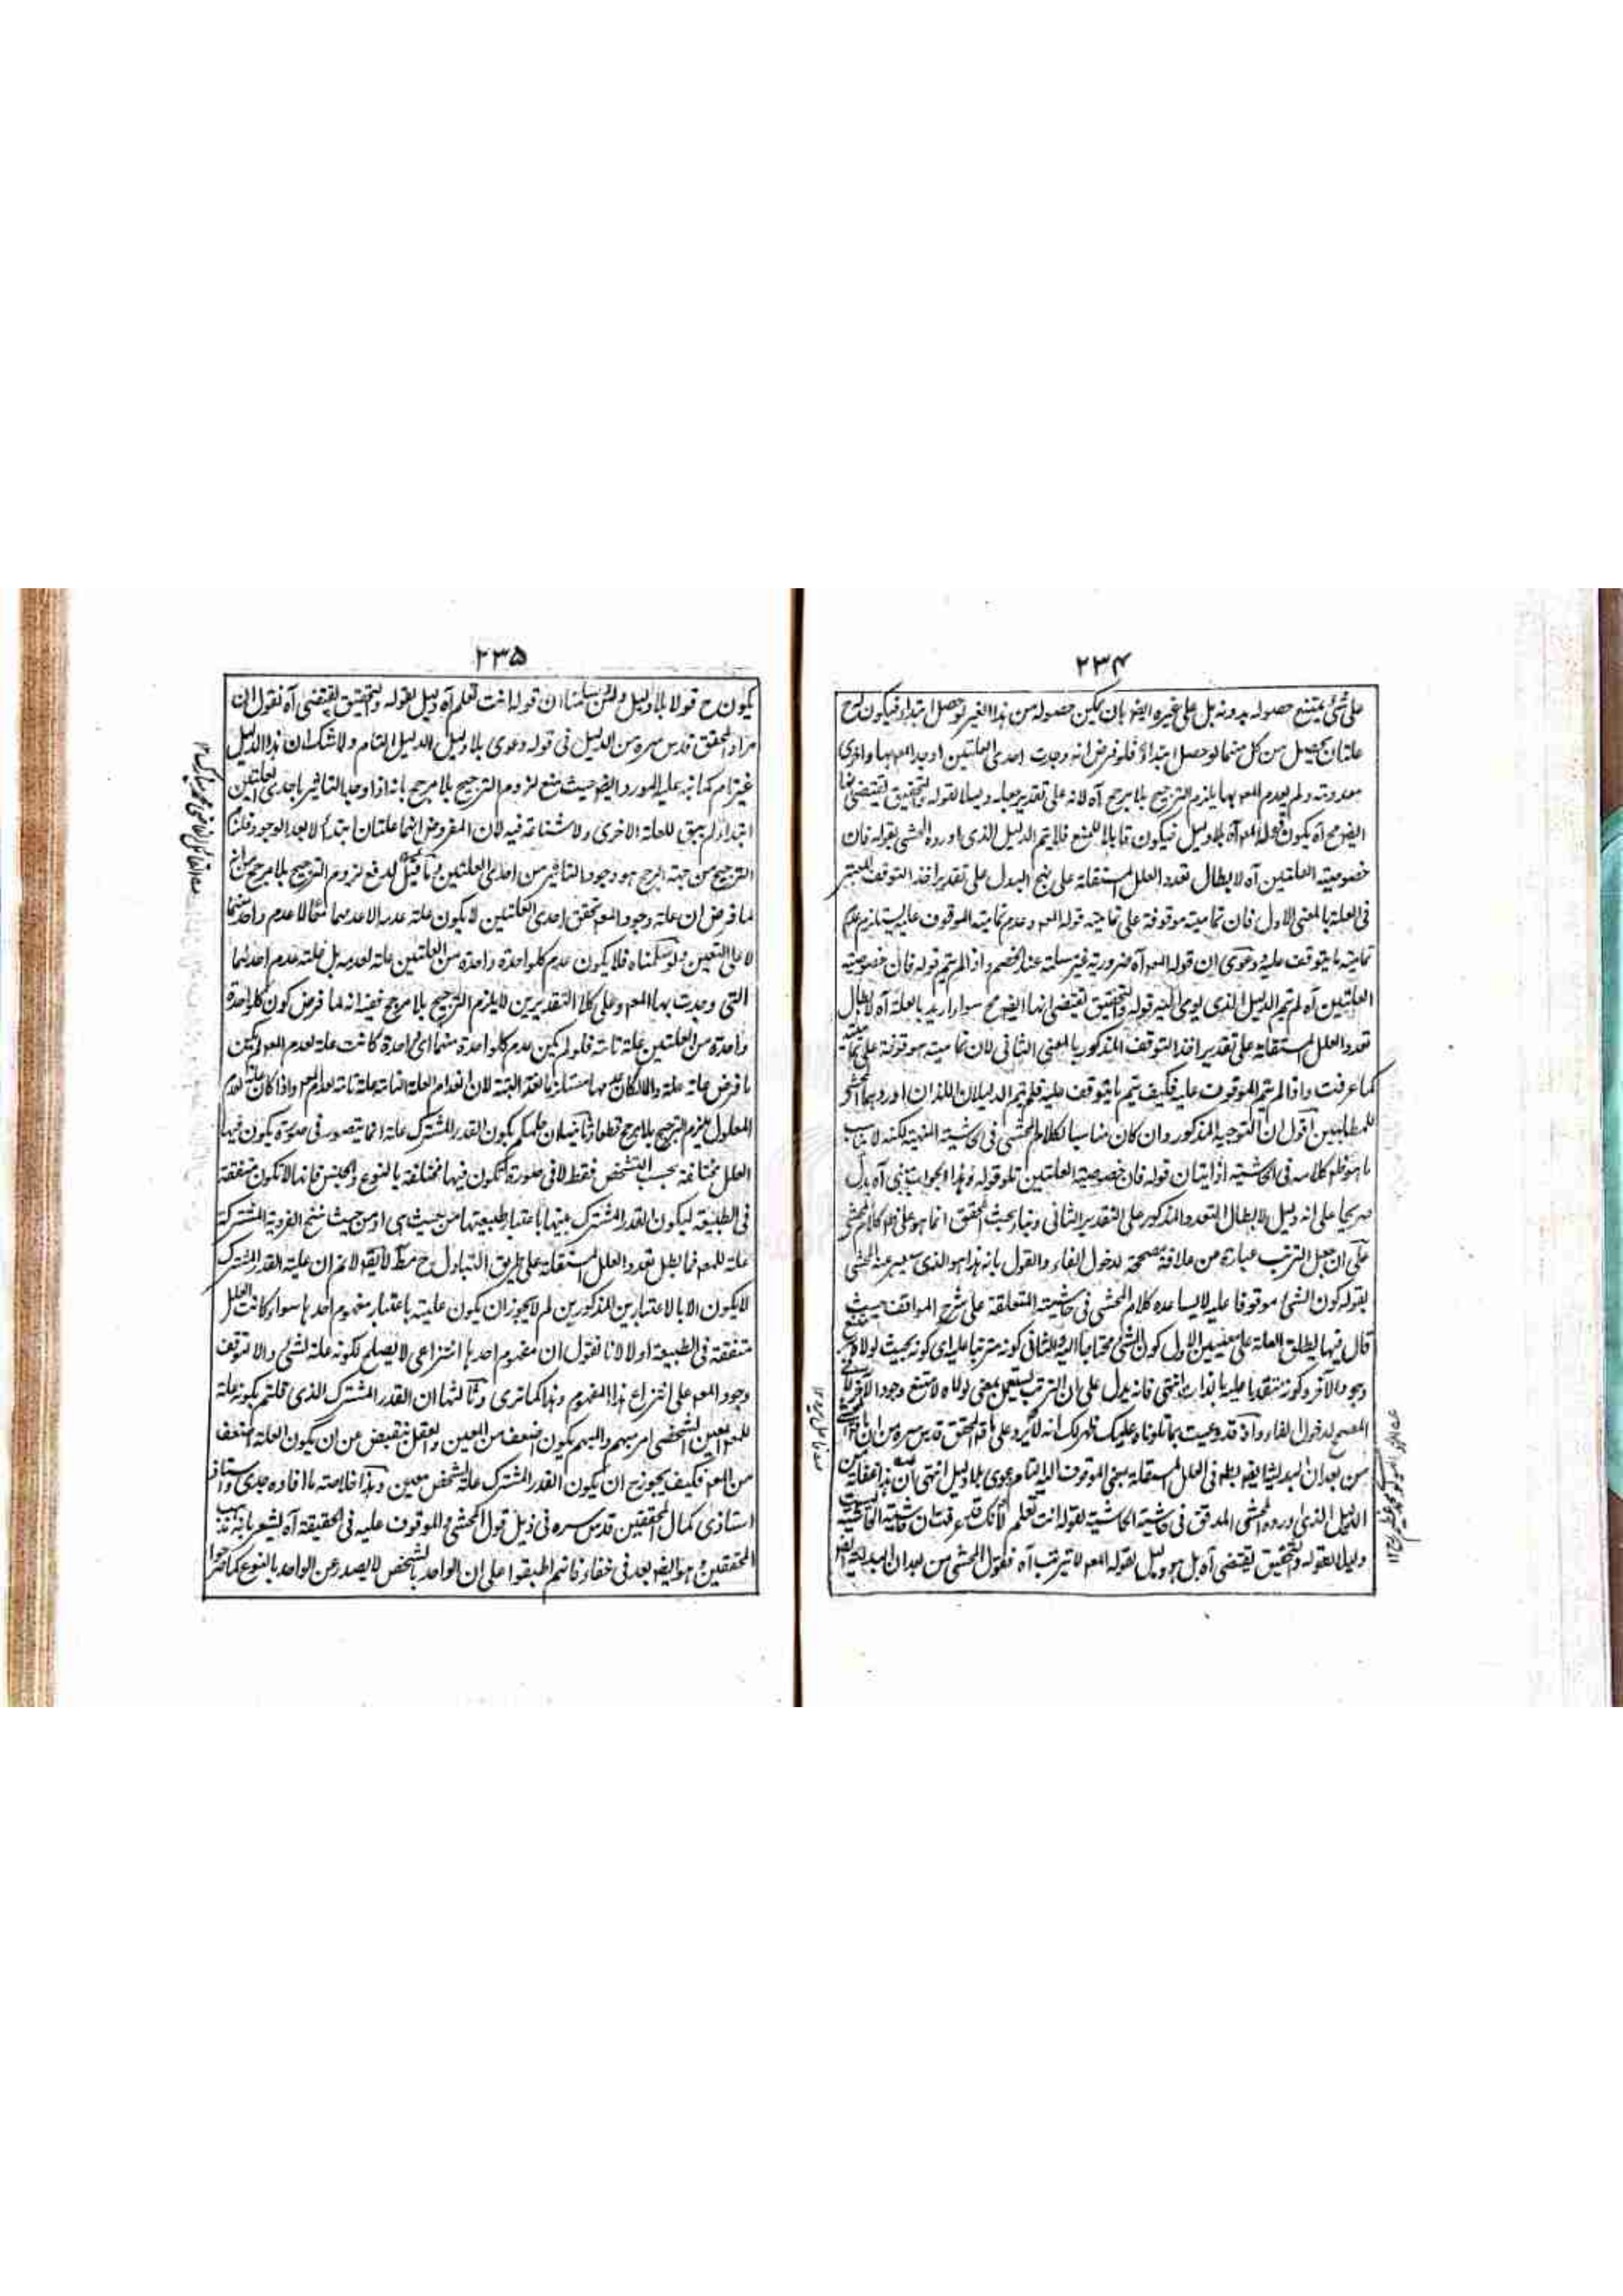 ٢٣٤
على شئ يمتنع حصوله بدونه بل على غيره ايضا بان يمكن حصوله من هذا الغير لو حصل ابتداء فيكون لح
علتان يحصل من كل منهما لو حصل ابتداء فلو فرض انه وجدت احدى العلتين اوجد المعـ بها واخرى
معدومة ولم يعدم المعـ بها يلزم الترجيح بلا مرجح آه لانه على تقدير جعله دليلا لقوله والتحقيق يقتضى انها
ايضـ مح آه يكون قوله المعـ آه بلا دليل فيكون قابلا للمنع فلا يتم الدليل الذى اورده المحشى بقوله فان
خصوصية العلتين آه لابطال تعدد العلل المستقلة على نهج البدل على تقدير اخذ التوقف المعتبر
فى العلة بالمعنى الاول فان تماميته موقوفة على تمامية قوله المعـ وعدم تمامية الموقوف عليه يستلزم عدم
تمامية ما يتوقف عليه ودعوى ان قوله المعـ آه ضرورية غير مسلمة عند الخصم واذا لم يتم قوله فان خصوصية
العلتين آه لم يتم الدليل الذى يومى اليه قوله والتحقيق يقتضى انها ايضـ مح سواء اريد بالعلة آه لابطال
تعدد العلل المستقلة على تقدير اخذ التوقف المذكور بالمعنى الثانى لان تماميته موقوفة على تماميته
كما عرفت واذا لم يتم الموقوف عليه فكيف يتم ما يتوقف عليه فلم يتم الدليلان اللذان اوردهما المحشى
للمطلبين اقول ان التوجيه المذكور وان كان مناسبا لكلام المحشى فى حاشيته المنهية لكنه لا يناسب
ما هو ظ كلامه فى الحاشية اذ اتيان قوله فان خصوصية العلتين تلو قوله وهذا الجواب يبتنى آه يدل
صريحا على انه دليل لابطال التعدد المذكور على التقدير الثانى وبناء بحث المحقق انما هو على ظ كلام المحشى
على ان جعل الترتب عبارة عن علاقة مصححة لدخول الفاء والقول بانه هذا هو الذى سيعبر عنه المحشى
بقوله كون الشئ موقوفا عليه لا يساعده كلام المحشى فى حاشيته المتعلقة على شرح المواقف حيث
قال فيها يطلق العلة على معنيين الاول كون الشئ محتاجا اليه والثانى كونه مترتبا عليه اى كونه بحيث لولاه لامتنع
وجود الآخر وكونه متقدما عليه بالذات انتهى فانه يدل على ان الترتب يستعمل بمعنى لولاه لامتنع وجود الآخر لا بمعنى
المصحح لدخول الفاء واذ قد وعيت بما تلوناه عليك ظهر لك انه لا يرد على ما قال المحقق قدس سره من ان قول المحشى
من بعد ان البديهة ايضـ يعلم فى العلل المستقلة بمعنى الموقوف اليه التام دعوى بلا دليل انتهى ان هذا غفلة من
الدليل الذى اورده المحشى المدقق فى حاشية الحاشية بقوله انت تعلم لانك قد عرفت ان حاشية الحاشية ليست
دليلا لقوله والتحقيق يقتضى آه بل هو دليل بقوله المعـ لا يترتب آه فقول المحشى من بعد ان البديهة ايضـ
٢٣٥
يكون ح قولا بلا دليل ولئن سلمنا ان قوله انت تعلم آه دليل لقوله والتحقيق يقتضى آه فنقول ان
مراد المحقق قدس سره من الدليل فى قوله دعوى بلا دليل الدليل التام ولا شك ان هذا الدليل
غير تام كما نبه عليه المورد ايضـ حيث منع لزوم الترجيح بلا مرجح بانه اذا وجد التاثير باحدى العلتين
ابتداء لم يبق للعلة الاخرى ولا شناعة فيه لان المفروض انهما علتان ابتداء لا بعد الوجود فلنا
الترجيح من جهة المرجح هو وجود التاثير من احدى العلتين وما قيل لدفع لزوم الترجيح بلا مرجح من انه
لما فرض ان علة وجود المعـ تحقق احدى العلتين لا يكون علة عدمه الا عدمهما معا لا عدم واحد منهما
لا على التعيين ولو سلمناه فلا يكون عدم كل واحدة واحدة من العلتين علة لعدمه بل علته عدم احدهما
التى وجدت بها المعـ وعلى كلا التقديرين لا يلزم الترجيح بلا مرجح ففيه انه لما فرض كون كل واحدة
واحدة من العلتين علة تامة فلو لم يكن عدم كل واحدة منهما اى واحدة كانت علة لعدم المعـ لم يكن
ما فرض علة علة والا لكان عدمها مستلزما لعدمه البتة لان انعدام العلة التامة علة تامة لعدم المعـ واذا كان علة لعدم
المعلول يلزم الترجيح بلا مرجح قطعا وثانيا بان حكمكم بكون القدر المشترك علة انما يتصور فى صورة يكون فيها
العلل مختلفة بحسب التشخص فقط لا فى صورة تكون فيها مختلفة بالنوع والجنس فانها لا تكون متفقة
فى الطبيعة ليكون القدر المشترك بينها باعتبار طبيعتها من حيث هى او من حيث سنخ الفردية المشتركة
علة للمعـ فما بطل تعدد العلل المستقلة على طريق التبادل ح مط لا يقـ لانم ان علية القدر المشترك
لا يكون الا بالاعتبارين المذكورين لم لا يجوز ان يكون علية باعتبار مفهوم احدها سواء كانت العلل
متفقة فى الطبيعة او لا لانا نقول ان مفهوم احدها انتزاعى لا يصلح لكونه علة لشئ والا لتوقف
وجود المعـ على انتزاع هذا المفهوم وهذا كما ترى وثالثا بان القدر المشترك الذى قلتم بكونه علة
للمعـ المعين الشخصى امر مبهم والمبهم يكون اضعف من المعين والعقل ينقبض عن ان يكون العلة اضعف
من المعـ فكيف يجوز ح ان يكون القدر المشترك علة لشخص معين وهذا خلاصة ما افاده جدى واستاذ
استاذى كمال المحققين قدس سره فى ذيل قول المحشى والموقوف عليه فى الحقيقة آه ليشعر بانه مذهب
المحققين وهو ايضـ بعد فى خفاء فانهم اطبقوا على ان الواحد بالشخص لا يصدر عن الواحد بالنوع كما صرحوا